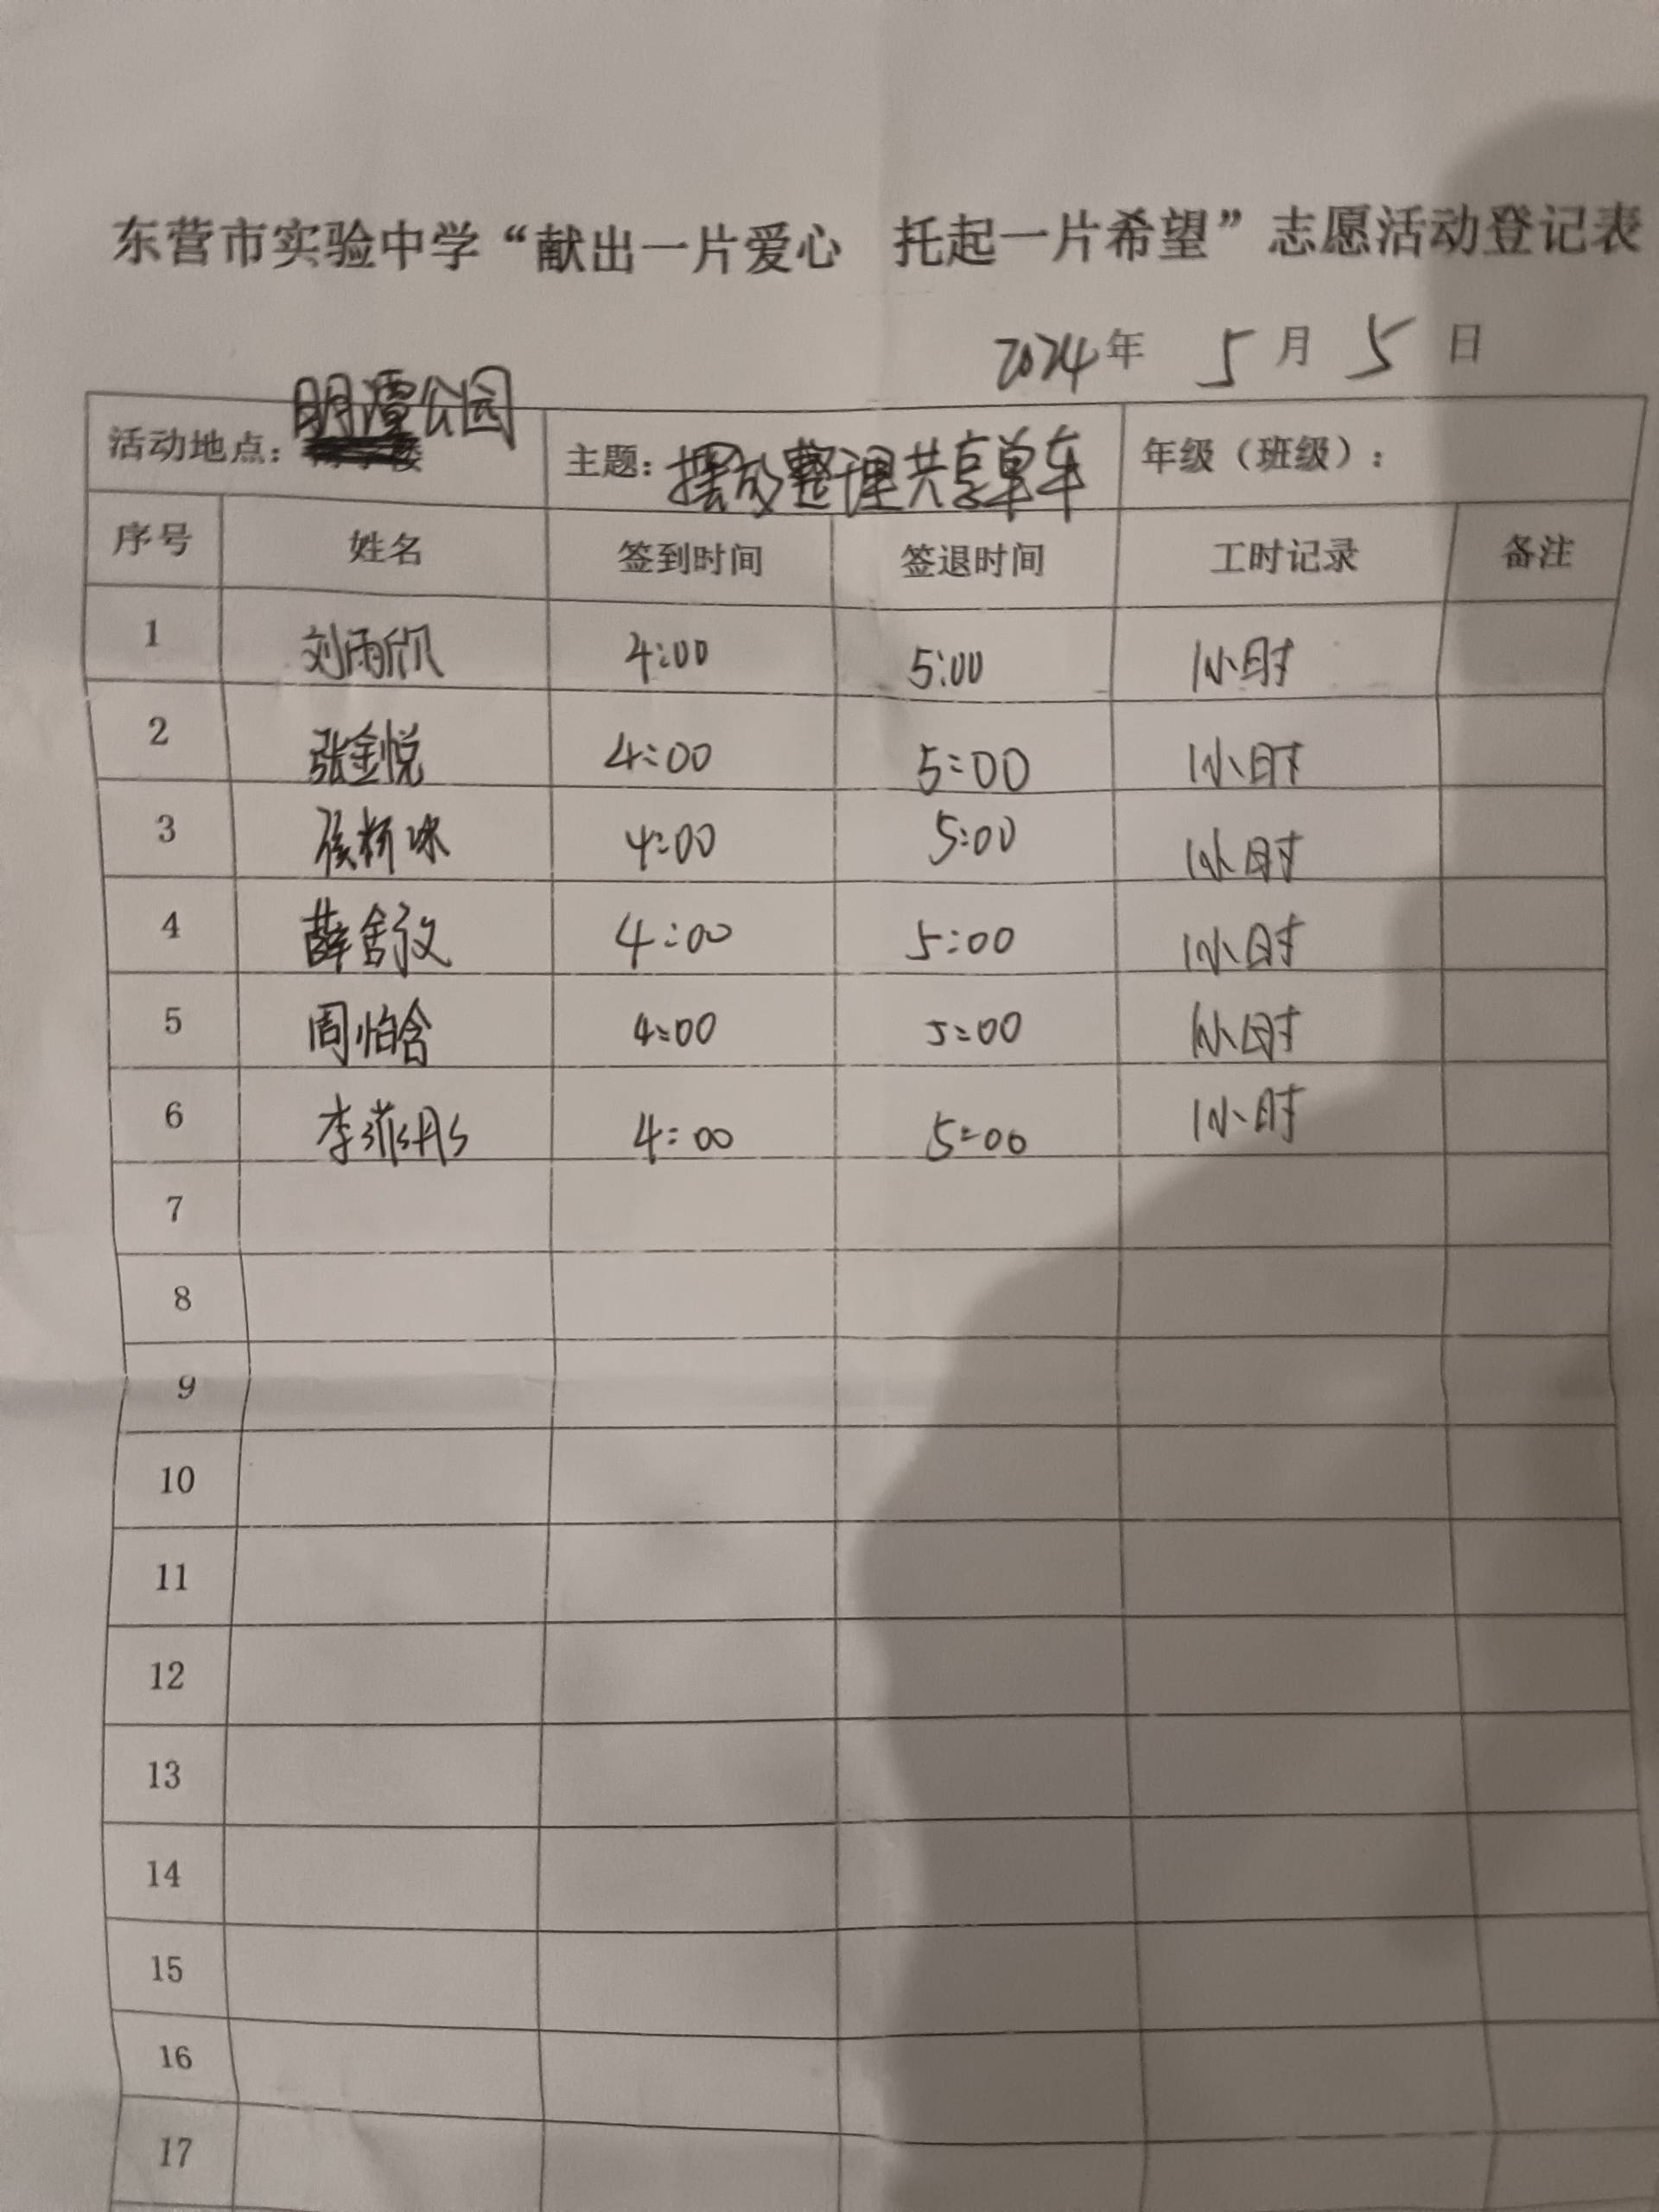 东营市实验中学“献出一片爱心 托起一片希望”志愿活动登记表
2024年 5月 5日
活动地点：明潭公园 主题：摆放整理共享单车 年级（班级）：
序号 姓名 签到时间 签退时间 工时记录 备注
1 刘雨欣 4:00 5:00 1小时
2 张金悦 4:00 5:00 1小时
3 4:00 5:00 1小时
4 薛舍文 4:00 5:00 1小时
5 周怡含 4:00 5:00 1小时
6 李菲彤 4:00 5:00 1小时
7
8
9
10
11
12
13
14
15
16
17